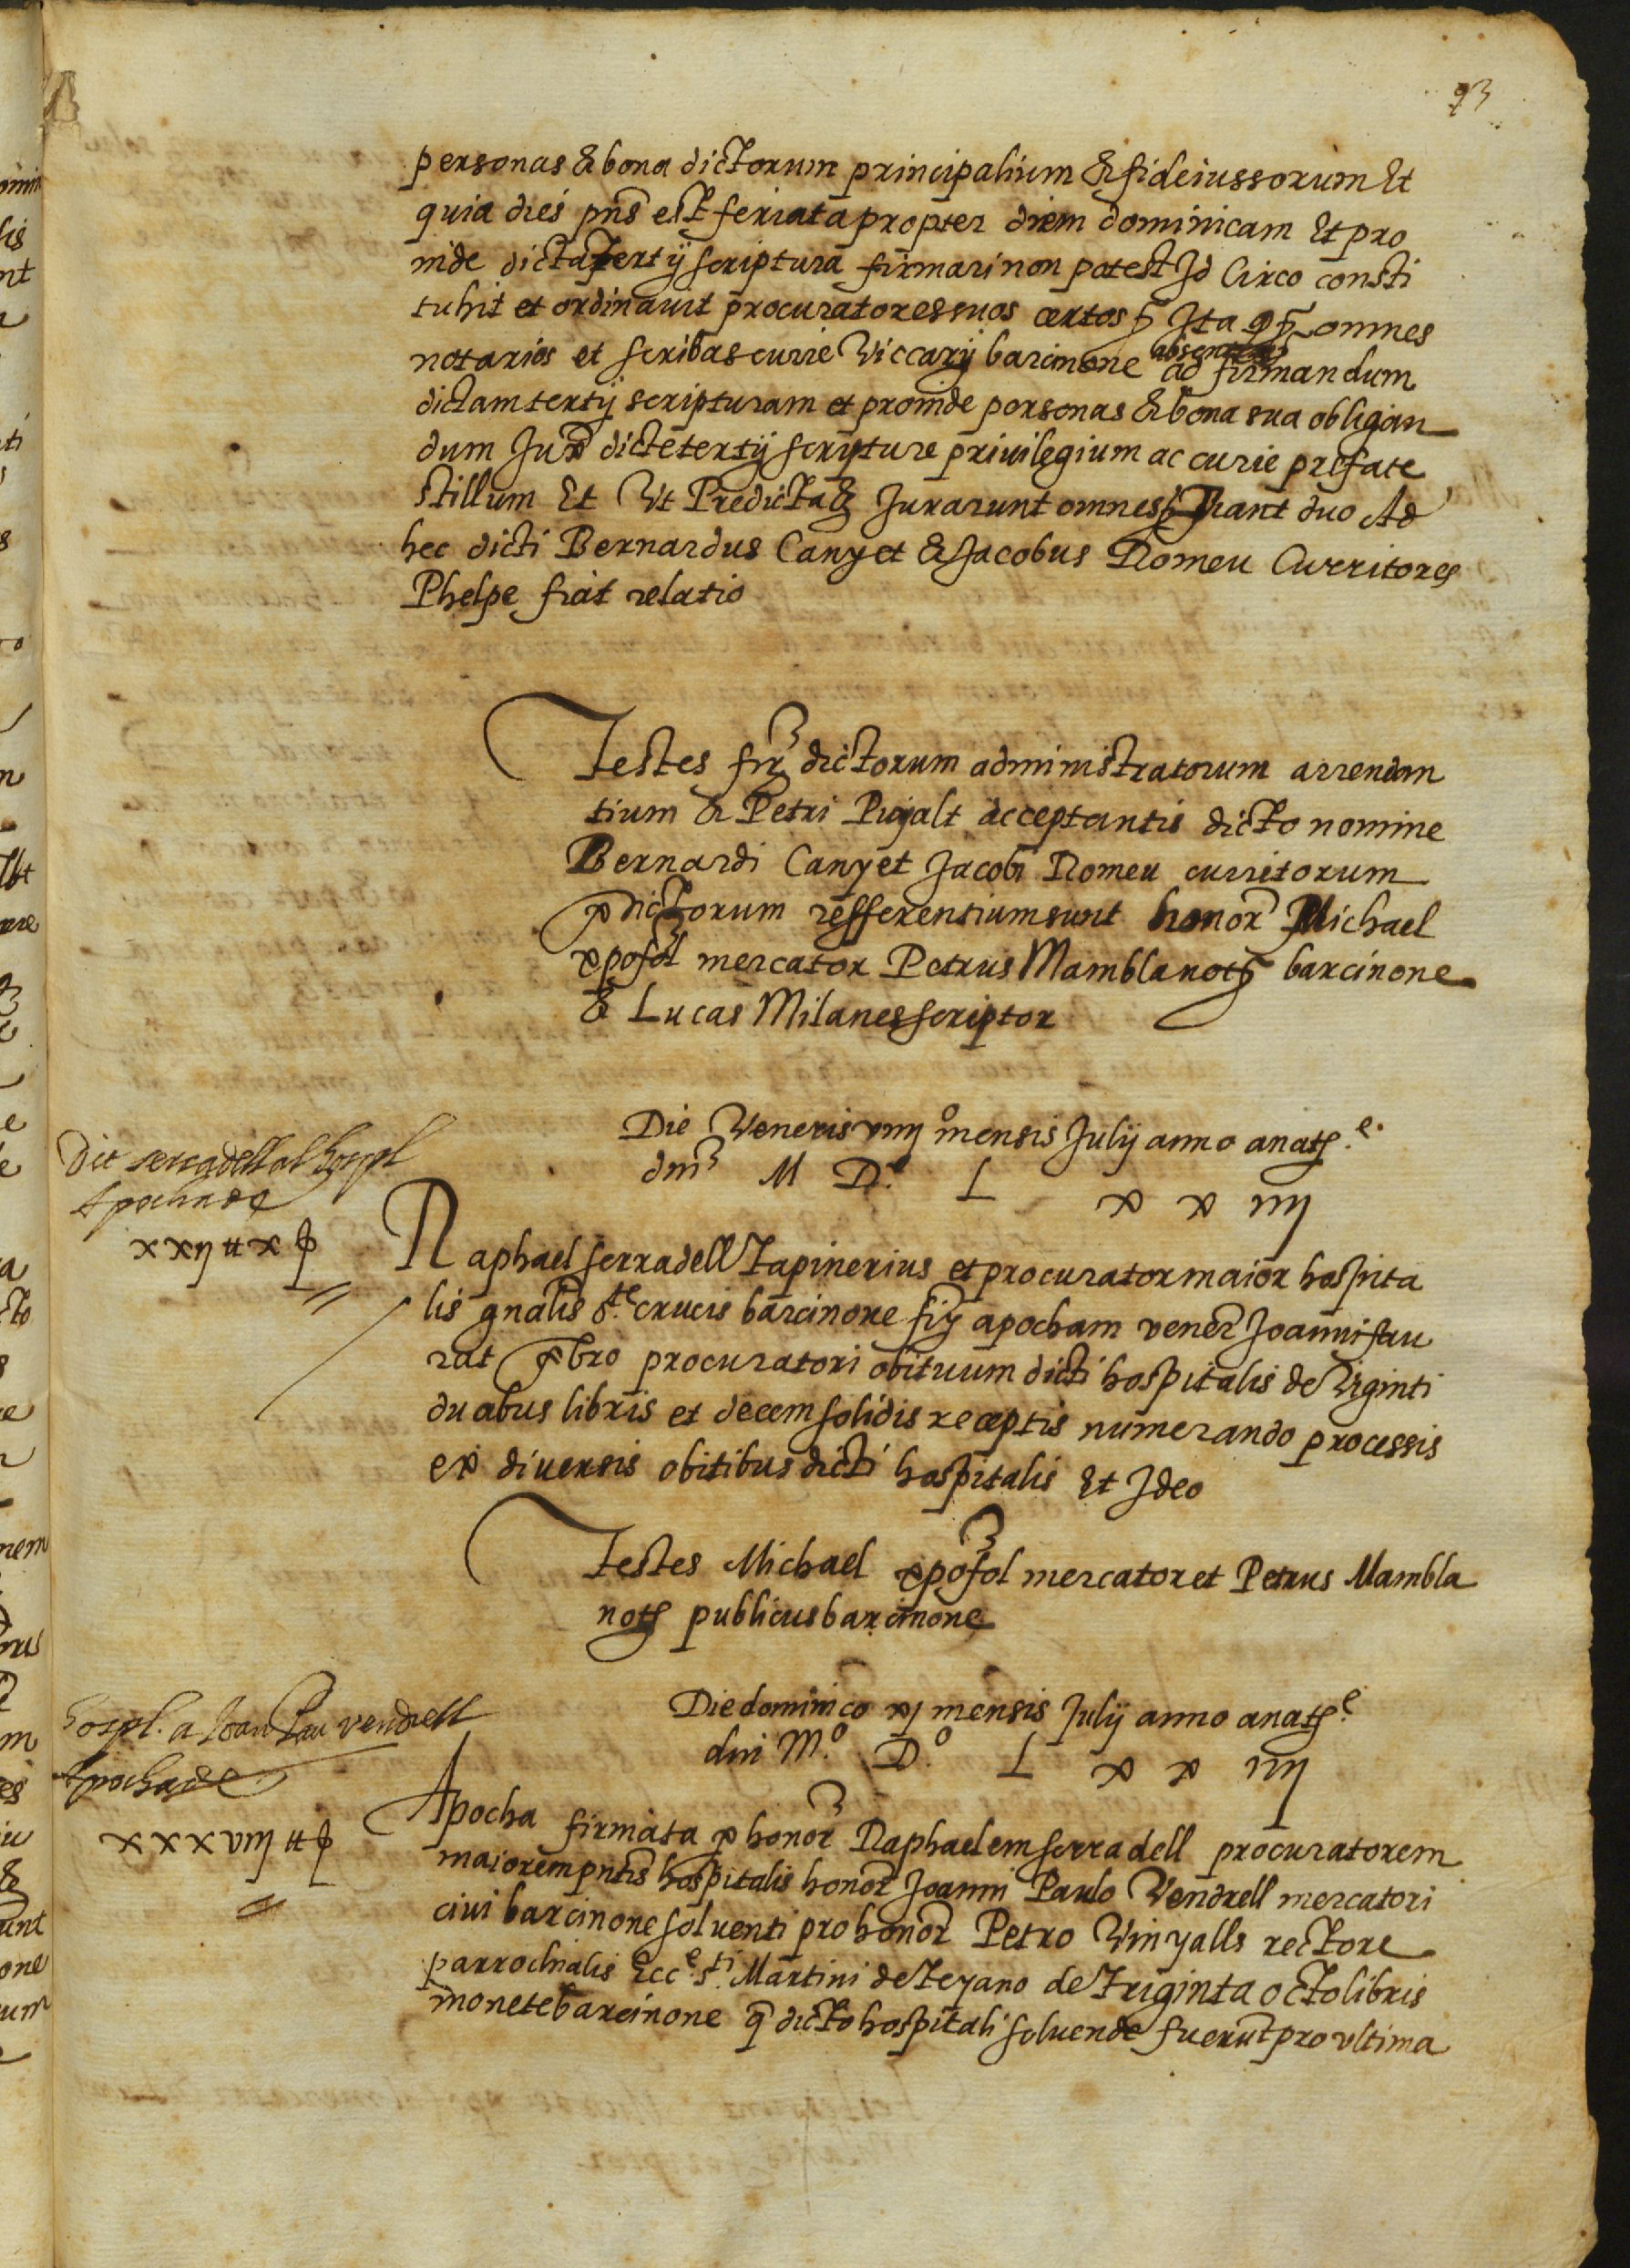 93
personas & bona dictorum principalium & fideiussorum Et
quia dies pñs est feriata propter diem dominicam Et pro
inde dicta tertij scriptura firmari non potest Id Circo consti
tuhit et ordinauit procuratores suos certos Ita omnes
absentes
notarios et scribas curie Viccarij barcinone ad firmandum
dictam tertij scripturam et proinde personas & bona sua obligan
dum dicte tertij scripture priuilegium ac curie prefate
stillum Et Vt Predicta Jurarunt omnes fiant duo Ad
hec dicti Bernardus Canyet & Jacobus Romeu Curritores
Phelpe fiat relatio
Testes dictorum administratorum arrendan
tium & Petri Pujalt acceptantis dicto nomine
Bernardi Canyet Jacobi Romeu curritorum
pdictorum refferentium sunt honor Michael
xpofol mercator Petrus Mambla not barcinone
& Lucas Milanes scriptor
Die Veneris viiij º mensis Julij anno a nat e.
dm M D.º L x x iiij
Dit serradell al hospl
Apocha de
xxij ħ x ß
Raphael serradell Tapinerius et procurator maior hospita
lis gnalis s.te crucis barcinone fir apocham vener Joanni fau
rat pbro procuratori obituum dicti hospitalis de Viginti
duabus libris et decem solidis receptis numerando processis
ex diuersis obitibus dicti hospitalis Et Ideo
Testes Michael xpofol mercator et Petrus Mambla
not publicus barcinone
Die dominico xj mensis Julij anno a nat e
dni M.º D.º L x x iiij
hospl. a Joan Pau vendrell
Apocha de
xxxviij ħ ß
Apocha firmata p honor Raphaelem serradell procuratorem
maiorem pntis hospitalis honor Joanni Paulo Vendrell mercatori
ciui barcinone soluenti pro honor Petro Vinyalls rectore
parrochialis Ecc.e s.ti Martini de Teyano de Triginta octo libris
monete barcinone q dicto hospitali soluende fuerut pro vltima